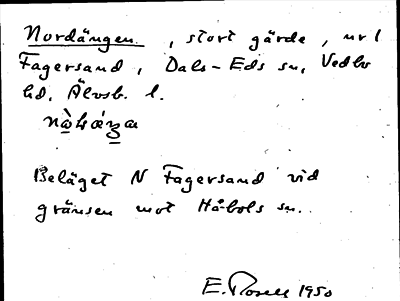 Nordängen , stort gärde, nr 1
Fagersand, Dals-Eds sn, Vedbo
hd, Älvsb. l.
Beläget N Fagersand vid
gränsen mot Håbols sn.
E. Rosell 1950